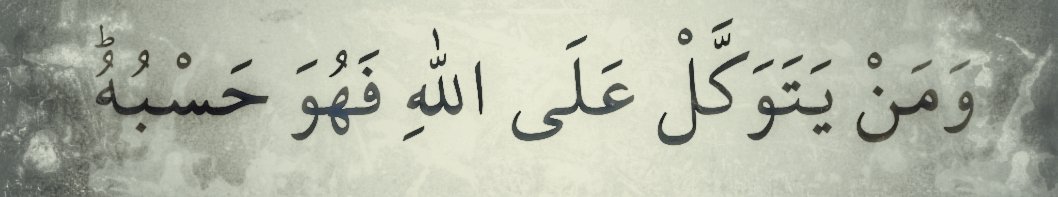 وَمَنْ يَتَوَكَّلْ عَلَى اللّٰهِ فَهُوَ حَسْبُهٗؕ